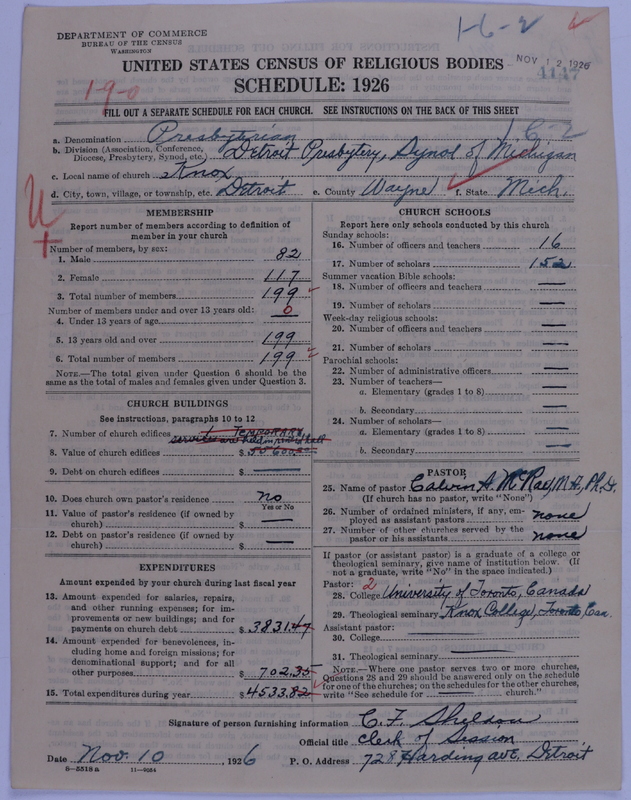 DEPARTMENT OF COMMERCE
BUREAU OF THE CENSUS
WASHINGTON
1-6-2
UNITED STATES CENSUS OF RELIGIOUS BODIES
NOV 12 1926
4147
SCHEDULE: 1926
19-0
FILL OUT A SEPARATE SCHEDULE FOR EACH CHURCH. SEE INSTRUCTIONS ON THE BACK OF THIS SHEET
a. Denomination Presbyterian
b. Division (Association, Conference, Diocese, Presbytery, Synod, etc.) Detroit Presbytery, Synod of Michigan
c. Local name of church Knox
d. City, town, village, or township, etc. Detroit e. County Wayne f. State Mich.
MEMBERSHIP
Report number of members according to definition of member in your church
Number of members, by sex:
1. Male 82
2. Female 117
3. Total number of members 199
Number of members under and over 13 years old:
4. Under 13 years of age 0
5. 13 years old and over 199
6. Total number of members 199
NOTE.—The total given under Question 6 should be the same as the total of males and females given under Question 3.
CHURCH BUILDINGS
See instructions, paragraphs 10 to 12
7. Number of church edifices 1 TEMPORARY
8. Value of church edifices $
9. Debt on church edifices $ —
10. Does church own pastor's residence No
Yes or No
11. Value of pastor's residence (if owned by church) $ —
12. Debt on pastor's residence (if owned by church) $ —
EXPENDITURES
Amount expended by your church during last fiscal year
13. Amount expended for salaries, repairs, and other running expenses; for improvements or new buildings; and for payments on church debt $ 3831.47
14. Amount expended for benevolences, including home and foreign missions; for denominational support; and for all other purposes $ 702.35
15. Total expenditures during year $ 4533.82
CHURCH SCHOOLS
Report here only schools conducted by this church
Sunday schools:
16. Number of officers and teachers 16
17. Number of scholars 152
Summer vacation Bible schools:
18. Number of officers and teachers —
19. Number of scholars —
Week-day religious schools:
20. Number of officers and teachers —
21. Number of scholars —
Parochial schools:
22. Number of administrative officers —
23. Number of teachers—
a. Elementary (grades 1 to 8) —
b. Secondary —
24. Number of scholars—
a. Elementary (grades 1 to 8) —
b. Secondary —
PASTOR
25. Name of pastor Calvin A. McRae, M.A., Ph.D.
(If church has no pastor, write "None")
26. Number of ordained ministers, if any, employed as assistant pastors none
27. Number of other churches served by the pastor or his assistants none
If pastor (or assistant pastor) is a graduate of a college or theological seminary, give name of institution below. (If not a graduate, write "No" in the space indicated.)
Pastor: 2
28. College University of Toronto, Canada
29. Theological seminary Knox College, Toronto, Can.
Assistant pastor:
30. College
31. Theological seminary
NOTE.—Where one pastor serves two or more churches, Questions 28 and 29 should be answered only on the schedule for one of the churches; on the schedules for the other churches, write "See schedule for church."
Signature of person furnishing information C. F. Sheldon
Official title Clerk of Session
Date Nov. 10 1926 P. O. Address 728 Harding ave. Detroit
8—5518a 11—9054